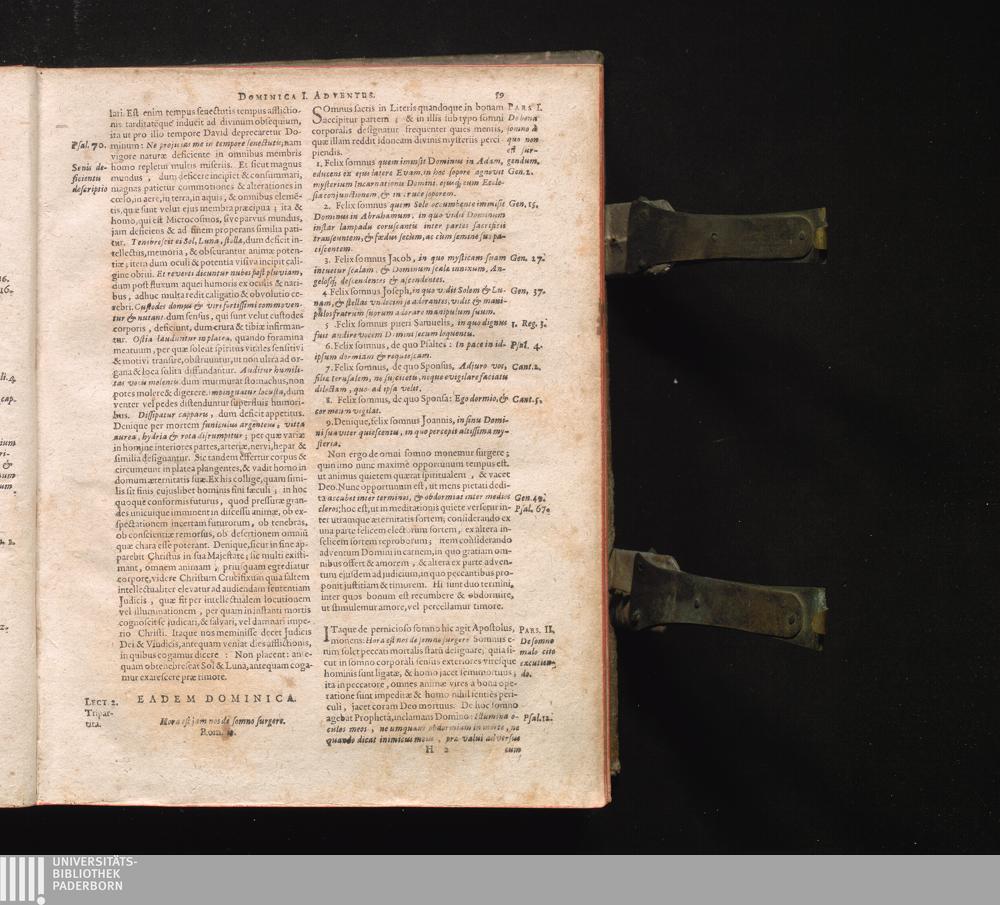 DOMINICA I. ADVENTUS. 59
lari. Est enim tempus senectutis tempus afflictio-
nis tarditatéque inducit ad divinum obsequium,
ita ut pro illo tempore David deprecaretur Do-
Psal. 70. minum: Ne projicias me in tempore senectutis; nam
vigore naturæ deficiente in omnibus membris
Senis de- homo repletur multis miseriis. Et sicut magnus
ficientis mundus, dum deficere incipit & consummari,
descriptio magnas patietur commotiones & alterationes in
cœlo, in aere, in terra, in aquis, & omnibus elemē-
tis, quæ sunt velut ejus membra præcipua; ita &
homo, qui est Microcosmos, sive parvus mundus,
jam deficiens & ad finem properans similia pati-
tur. Tenebrescit ei Sol, Luna, stella, dum deficit in-
tellectus, memoria, & obscurantur animæ poten-
tiæ; item dum oculi & potentia visiva incipit cali-
gine obrui. Et reverti dicuntur nubes post pluviam,
dum post fluxum aquei humoris ex oculis & nari-
bus, adhuc multa redit caligatio & obvolutio ce-
rebri. Custodes domus & viri fortissimi commoven-
tur & nutant dum sensus, qui sunt velut custodes
corporis, deficiunt, dum crura & tibiæ infirman-
tur. Ostia clauduntur in platea, quando foramina
meatuum, per quæ solent spiritus vitales sensitivi
& motivi transire, obstruuntur, ut non ultra ad or-
gana & loca solita diffundantur. Auditur humili-
tas vocis molentis dum murmurat stomachus, non
potes molere & digerere. impinguatur locusta, dum
venter vel pedes distenduntur superfluis humori-
bus. Dissipatur capparis, dum deficit appetitus.
Denique per mortem funiculus argenteus, vitta
aurea, hydria & rota disrumpitur; per quæ variæ
in homine interiores partes, arteriæ, nervi, hepar &
similia designantur. Sic tandem effertur corpus &
circumeunt in platea plangentes, & vadit homo in
domum æternitatis suæ. Ex his collige, quam simi-
lis sit finis cujuslibet hominis fini sæculi; in hoc
quoque conformis futurus, quod pressuræ gran-
des unicuique imminent in discessu animæ, ob ex-
spectationem incertam futurorum, ob tenebras,
ob conscientiæ remorsus, ob desertionem omniū
quæ chara esse poterant. Denique, sicut in fine ap-
parebit Christus in sua Majestate; sic multi existi-
mant, omnem animam, priusquam egrediatur
corpore, videre Christum Crucifixum qua saltem
intellectualiter elevatur ad audiendam sententiam
Judicis, quæ fit per intellectualem locutionem
vel illuminationem, per quam in instanti mortis
cognoscit se judicari, & salvari, vel damnari impe-
rio Christi. Itaque nos meminisse decet Judicis
Dei & Vindicis, antequam veniat dies afflictionis,
in quibus cogamur dicere: Non placent: ante-
quam obtenebrescat Sol & Luna, antequam coga-
mur exarescere præ timore.
LECT. 2.
Tripar-
tita.
EADEM DOMINICA.
Hora est jam nos de somno surgere.
Rom.
SOmnus sacris in Literis quandoque in bonam PARS I.
accipitur partem; & in illis sub typo somni De bono
corporalis designatur frequenter quies mentis, somno à
quæ illam reddit idoneam divinis mysteriis perci- quo non
piendis. est sur-
1. Felix somnus quem immisit Dominus in Adam, gendum.
educens ex ejus latere Evam, in hoc sopore agnovit Gen. 2.
mysterium Incarnationis Domini, ejusq; cum Eccle-
sia conjunctionem, & in cruce soporem.
2. Felix somnus quem Sole occumbente immisit Gen. 15.
Dominus in Abrahamum, in quo vidit Dominum
instar lampadis coruscantis inter partes sacrificii
transeuntem, & fœdus secum, ac cum semine suo pa-
ciscentem.
3. Felix somnus Jacob, in quo mysticam suam Gen. 27.
intuetur scalam, & Dominum scala innixum, An-
gelosq; descendentes & ascendentes.
4. Felix somnus Joseph, in quo vidit Solem & Lu- Gen. 37.
nam, & stellas undecim se adorantes, vidit & mani-
pulos fratrum suorum adorare manipulum suum.
5. Felix somnus pueri Samuelis, in quo dignus 1. Reg. 3.
fuit audire vocem Domini secum loquentis.
6. Felix somnus, de quo Psaltes: In pace in id- Psal. 4.
ipsum dormiam & requiescam.
7. Felix somnus, de quo Sponsus, Adjuro vos, Cant. 2.
filiæ Jerusalem, ne suscitetis, neque evigilare faciatis
dilectam, quo ad ipsa velit.
8. Felix somnus, de quo Sponsa: Ego dormio, & Cant. 5.
cor meum vigilat.
9. Denique, felix somnus Joannis, in sinu Domi-
ni suaviter quiescentis, in quo percepit altissima my-
steria.
Non ergo de omni somno monemur surgere;
quin imo nunc maximè opportunum tempus est,
ut animus quietem quærat spiritualem, & vacet
Deo. Nunc opportunum est, ut mens pietati dedi-
ta accubet inter terminos, & obdormiat inter medios Gen. 49.
cleros; hoc est, ut in meditationis quiete versetur in- Psal. 67.
ter utramque æternitatis sortem, considerando ex
una parte felicem electorum sortem, ex altera in-
felicem sortem reproborum; item considerando
adventum Domini in carnem, in quo gratiam om-
nibus offert & amorem, & altera ex parte adven-
tum ejusdem ad judicium, in quo peccantibus pro-
ponit justitiam & timorem. Hi sunt duo termini,
inter quos bonum est recumbere & obdormire,
ut stimulemur amore, vel percellamur timore.
ITaque de pernicioso somno hic agit Apostolus, PARS. II.
monens: Hora est nos de somno surgere Somnus e- De somno
nim solet peccati mortalis statū designare; quia si- malo cito
cut in somno corporali sensus exteriores viresque excutien-
hominis sunt ligatæ, & homo jacet semimortuus; do.
ita in peccatore, omnes animæ vires à bona ope-
ratione sunt impeditæ & homo nihil sentiēs peri-
culi, jacet coram Deo mortuus. De hoc somno
agebat Propheta, inclamans Domino: Illumina o- Psal. 12.
culos meos, ne umquam obdormiam in morte, ne
quando dicat inimicus meus, præ valui adversus
H 2 eum
16.
16.
li. 4
cap.
ium
ri-
&
um
um
UNIVERSITÄTS-
BIBLIOTHEK
PADERBORN